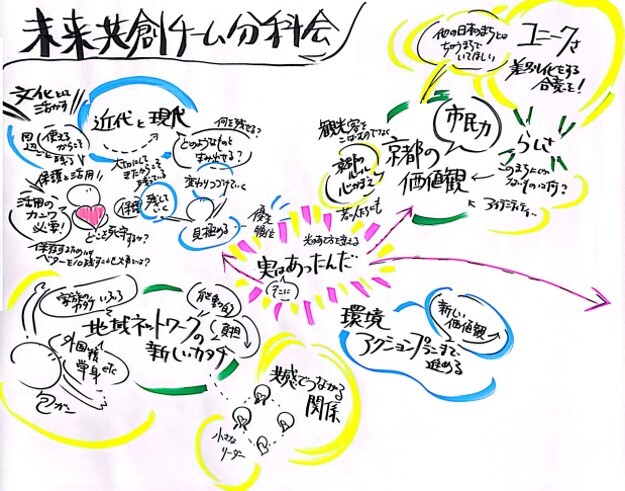 未来共創チーム分科会
文化とは
活かす
近代と現代
周辺
使えるからこそ
保護と活用!!
活用の
カニワ
必要!
どこを死守するか?
大切にして
きたからこそ
残っている
保護
残して
いく
何を残せる?
どのようなものを
生み出せる?
変わりつづけていく
見極める
優先
順位
光のあて方を変える
実はあったんだ
すでに
他の日本のまちとは
ちがうまちで
いてほしい
ユニークさ
差別化をする
合意を!
市民力
観光客を
こばむのでなく
京都の
ルール
心がまえ
京都の
価値観
らしさ
若い人たちにも
アイデンティティ
家族の
カタチ
いろいろ
能動的
負担
地域ネットワークの
新しいカタチ
外国籍
単身etc
包む
共感でつながる
関係
小さな
リーダー
環境
アクションプランまで、
進める
新しい
価値観